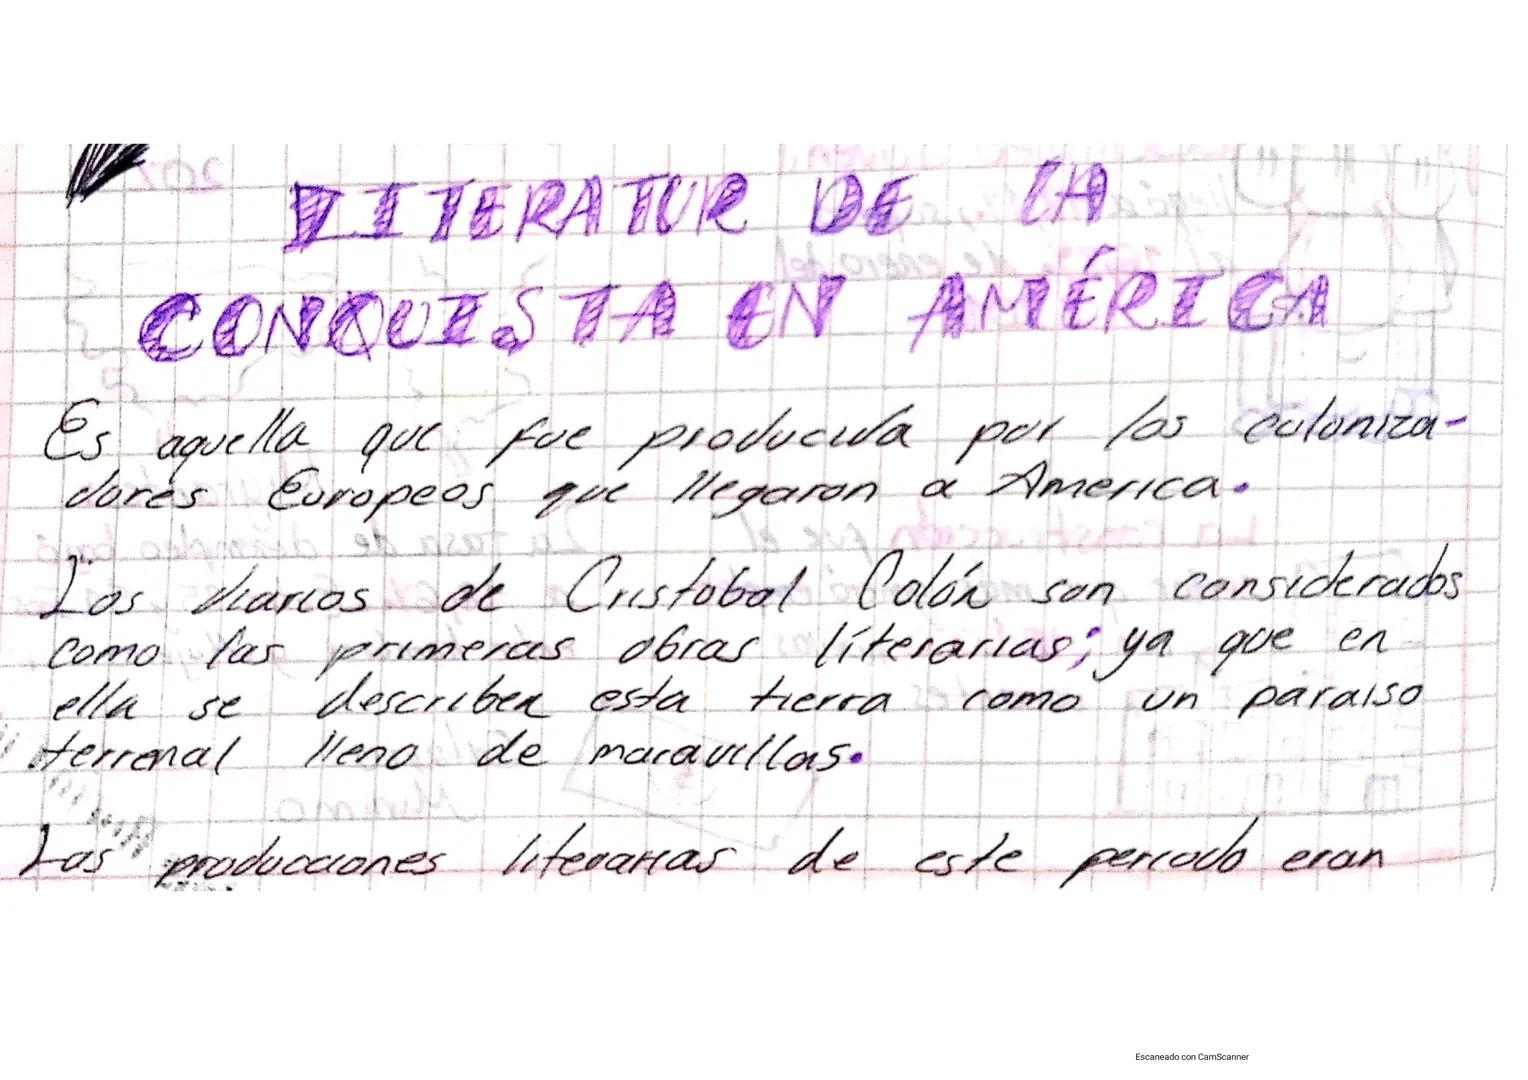 LITERATUR DE LA
CONQUISTA EN AMÉRICA
Es aquella que fue producida por los coloniza-
dores Europeos que llegaron a America.
Los diarios de Cristobal Colón son considerados
como las primeras obras literarias; ya que en
ella se describen esta tierra como un paraiso
terrenal lleno de maravillas.
Las producciones literarias de este periodo eran
Escaneado con CamScanner